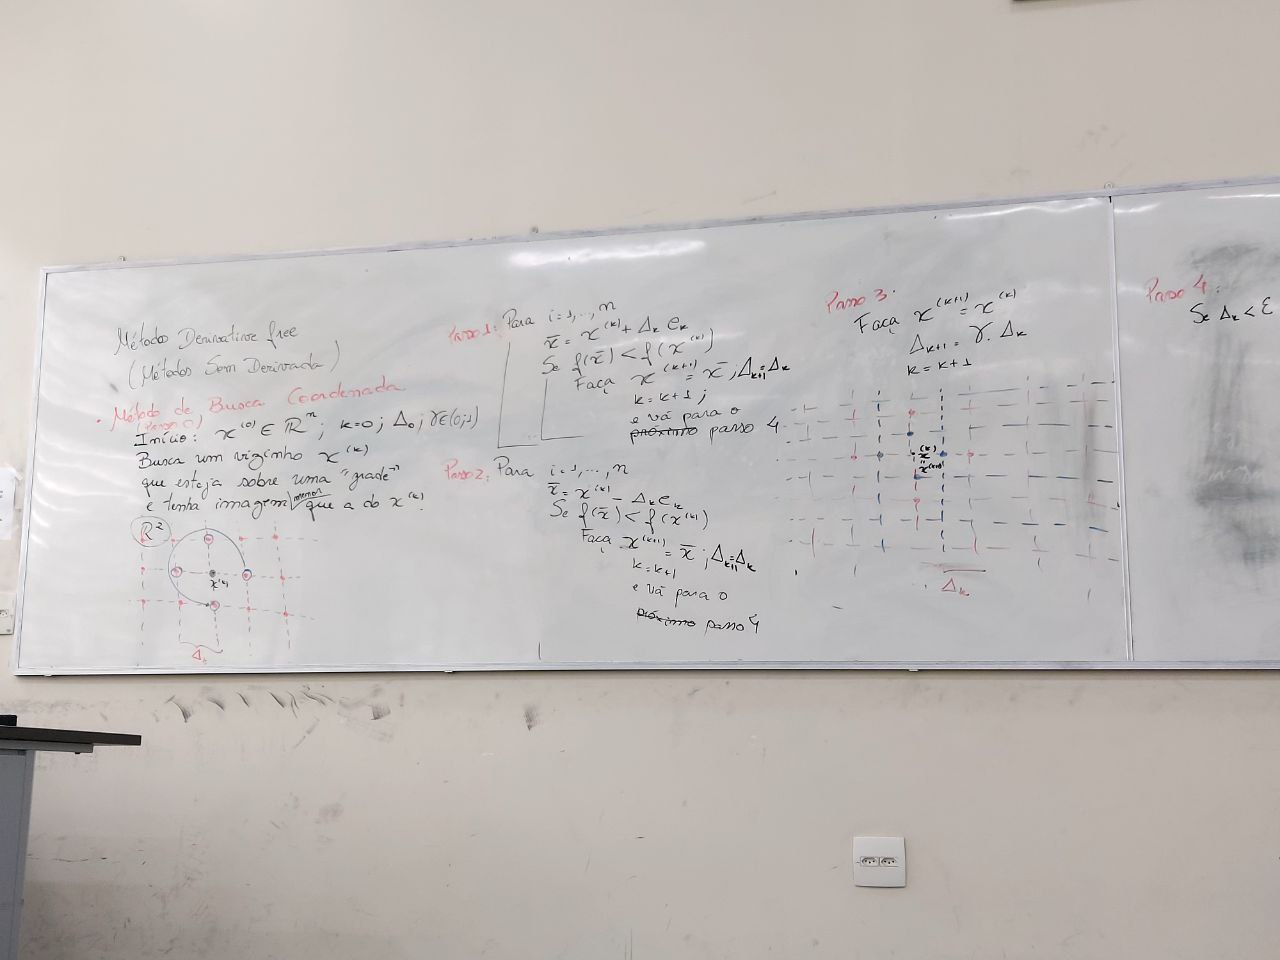 Método Derivative free
(Métodos Sem Derivada)
• Método de Busca Coordenada
(Passo 0)
Início: x^(0) ∈ ℝ^n; k=0; Δ₀; γ∈(0;1)
Busca um vizinho x^(k)
que esteja sobre uma "grade"
e tenha imagem menor que a do x^(k).
ℝ²
x^(k)
Δ_k
Passo 1: Para i=1,..,n
x̄ = x^(k) + Δ_k e_k
Se f(x̄) < f(x^(k))
Faça x^(k+1) = x̄, Δ_k+1 = Δ_k
k = k+1;
e vá para o
próximo passo 4.
Passo 2: Para i=1,..,n
x̄ = x^(k) - Δ_k e_k
Se f(x̄) < f(x^(k))
Faça x^(k+1) = x̄; Δ_k+1 = Δ_k
k = k+1
e vá para o
próximo passo 4
Passo 3:
Faça x^(k+1) = x^(k)
Δ_k+1 = γ. Δ_k
k = k+1
x^(k)
=
x^(k+1)
Δ_k
Passo 4:
Se Δ_k < ε